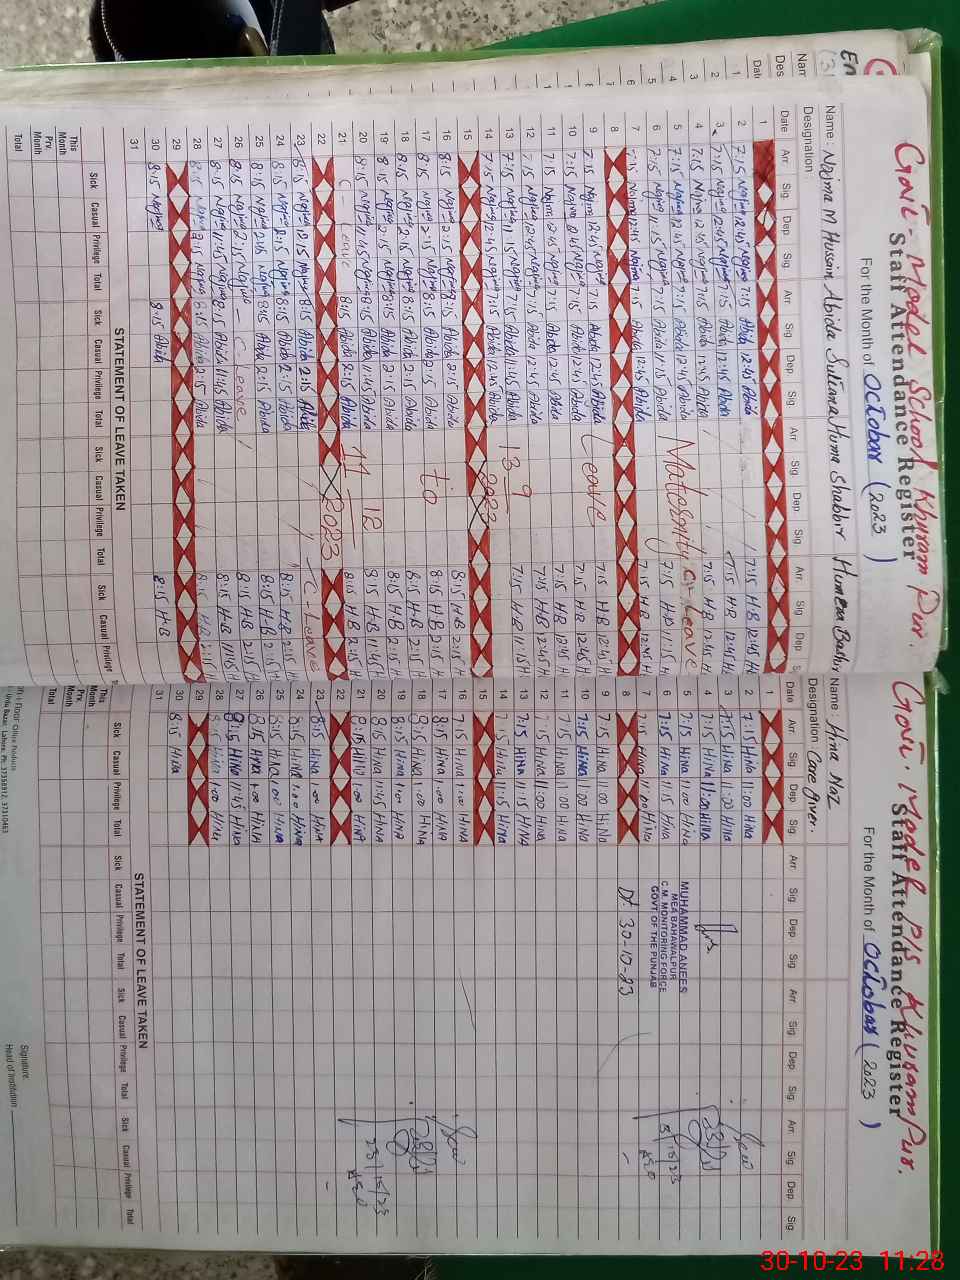 Govt- Model School Khuram Pur.
Staff Attendance Register
For the Month of October (2023)
Name: Najma M Hussain Abida Sultana Huma Shabbir Humera Bashir
Designation:
Date Arr. Sig. Dep. Sig. Arr. Sig. Dep. Sig. Arr. Sig. Dep. Sig. Arr. Sig. Dep. S
1
2 7:15 Najma 12:45 Najma 7:15 Abida 12:45 Abida 7:15 H-B 12:45 H
3 7:15 Najma 12:45 Najma 7:15 Abida 12:45 Abida 7:15 H-B 12:45 H
4 7:15 Najma 12:45 Najma 7:15 Abida 12:45 Abida 7:15 H-B 12:45 H
5 7:15 Najma 12:45 Najma 7:15 Abida 12:45 Abida
6 7:15 Najma 11:15 Najma 7:15 Abida 11:15 Abida 7:15 H-B 11:15 H
7 7:15 Najma 12:45 Najma 7:15 Abida 12:45 Abida 7:15 H-B 12:45 H
8
9 7:15 Najma 12:45 Najma 7:15 Abida 12:45 Abida 7:15 H-B 12:45 H
10 7:15 Najma 12:45 Najma 7:15 Abida 12:45 Abida 7:15 H-B 12:45 H
11 7:15 Najma 12:45 Najma 7:15 Abida 12:45 Abida 7:15 H-B 12:45 H
12 7:15 Najma 12:45 Najma 7:15 Abida 12:45 Abida 7:15 H-B 12:45 H
13 7:15 Najma 11:15 Najma 7:15 Abida 11:45 Abida 7:15 H-B 11:15 H
14 7:15 Najma 12:45 Najma 7:15 Abida 12:45 Abida
15
16 8:15 Najma 2:15 Najma 8:15 Abida 2:15 Abida 8:15 H-B 2:15 H
17 8:15 Najma 2:15 Najma 8:15 Abida 2:15 Abida 8:15 H-B 2:15 H
18 8:15 Najma 2:15 Najma 8:15 Abida 2:15 Abida 8:15 H-B 2:15 H
19 8:15 Najma 2:15 Najma 8:15 Abida 2:15 Abida 8:15 H-B 2:15 H
20 8:15 Najma 11:45 Najma 8:15 Abida 11:45 Abida 8:15 H-B 11:45 H
21 C - Leave 8:15 Abida 2:15 Abida 8:15 H-B 2:15 H
22
23 8:15 Najma 2:15 Najma 8:15 Abida 2:15 Abida C-Leave
24 8:15 Najma 2:15 Najma 8:15 Abida 2:15 Abida 8:15 H-B 2:15
25 8:15 Najma 2:15 Najma 8:15 Abida 2:15 Abida 8:15 H-B 2:15 H
26 8:15 Najma 2:15 Najma - C-Leave 8:15 H-B 2:15 H
27 8:15 Najma 11:45 Najma 8:15 Abida 11:45 Abida 8:15 H-B 11:45 H
28 8:15 Najma 2:15 Najma 8:15 Abida 2:15 Abida 8:15 H-B 2:15 H
29
30 8:15 Najma 8:15 Abida 8:15 H-B
31
Maternity Leave
Leave
13
9
2023
to
11
12
2023
STATEMENT OF LEAVE TAKEN
Sick Casual Privilege Total Sick Casual Privilege Total Sick Casual Privilege Total Sick Casual Privilege
This Month
Prv. Month
Total
Govt. Model P/s Khuram Pur.
Staff Attendance Register
For the Month of October (2023)
Name: Hina Naz
Designation: Care giver.
Date Arr. Sig. Dep. Sig. Arr. Sig. Dep. Sig. Arr. Sig. Dep. Sig. Arr. Sig. Dep. Sig.
1
2 7:15 Hina 11:00 Hina
3 7:15 Hina 11:00 Hina
4 7:15 Hina 11:00 Hina
5 7:15 Hina 11:00 Hina
6 7:15 Hina 11:15 Hina
7 7:15 Hina 11:00 Hina
8
9 7:15 Hina 11:00 Hina
10 7:15 Hina 11:00 Hina
11 7:15 Hina 11:00 Hina
12 7:15 Hina 11:00 Hina
13 7:15 Hina 11:15 Hina
14 7:15 Hina 11:15 Hina
15
16 7:15 Hina 1:00 Hina
17 8:15 Hina 1:00 Hina
18 8:15 Hina 1:00 Hina
19 8:15 Hina 1:00 Hina
20 8:15 Hina 11:45 Hina
21 8:15 Hina 1:00 Hina
22
23 8:15 Hina 1:00 Hina
24 8:15 Hina 1:00 Hina
25 8:15 Hina 1:00 Hina
26 8:15 Hina 1:00 Hina
27 8:15 Hina 11:45 Hina
28 8:15 Hina 1:00 Hina
29
30 8:15 Hina
31
MUHAMMAD ANEES
MEA BAHAWALPUR
C.M. MONITORING FORCE
GOVT OF THE PUNJAB
Dt. 30-10-23
STATEMENT OF LEAVE TAKEN
Sick Casual Privilege Total Sick Casual Privilege Total Sick Casual Privilege Total Sick Casual Privilege Total
This Month
Prv. Month
Total
Signature
Head of Institution
Urdu Bazar, Lahore. Ph: 37358912, 37310463
30-10-23 11:28